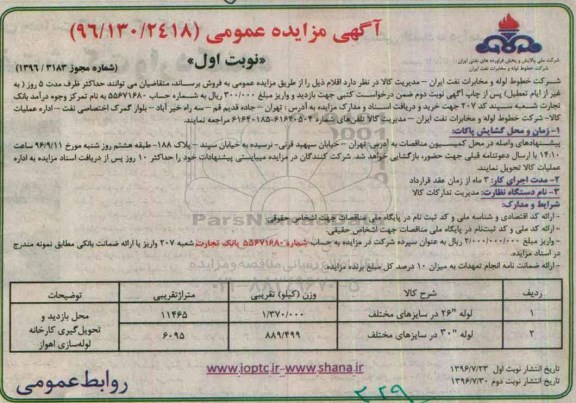 آگهی مزایده عمومی (۹۶/۱۳۰/۲۴۱۸)
شرکت ملی پالایش و پخش فرآورده های نفتی ایران
شرکت خطوط لوله و مخابرات نفت ایران
«نوبت اول»
(شماره مجوز ۳۱۸۳ / ۱۳۹۶)
شرکت خطوط لوله و مخابرات نفت ایران – مدیریت کالا در نظر دارد اقلام ذیل را از طریق مزایده عمومی به فروش برساند، متقاضیان می توانند حداکثر ظرف مدت ۵ روز ( به
غیر از ایام تعطیل) پس از چاپ آگهی نوبت دوم ضمن درخواست کتبی جهت بازدید و واریز مبلغ ۳۰۰/۰۰۰ ریال به شماره حساب ۵۵۶۷۱۶۸۰ به نام تمرکز وجوه درآمد بانک
تجارت شعبه سپند کد ۲۰۷ جهت خرید و دریافت اسناد و مدارک مزایده به آدرس : تهران – جاده قدیم قم – سه راه خیر آباد – بلوار گمرک اختصاصی نفت – اداره عملیات
کالا– شرکت خطوط لوله و مخابرات نفت ایران – مدیریت کالا تلفن‌های شماره ۴-۶۱۶۴۰۵۰۳ -۶۱۶۴۰۱۸۵ مراجعه نمایند.
۱- زمان و محل گشایش پاکات:
پیشنهادهای واصله در محل کمیسیون مناقصات به آدرس تهران – خیابان سپهبد قرنی- نرسیده به خیابان سپند – پلاک ۱۸۸- طبقه هشتم روز شنبه مورخ ۹۶/۹/۱۱ ساعت
۱۴:۱۰ با ارسال دعوتنامه قبلی جهت حضور، بازگشایی خواهد شد. شرکت کنندگان در مزایده میبایستی پیشنهادات خود را حداکثر ۱۰ روز پس از دریافت اسناد مزایده به اداره
عملیات کالا تحویل نمایند.
۲-مدت اجرای کار: ۳ ماه از زمان عقد قرارداد
۳- نام دستگاه نظارت: مدیریت تدارکات کالا
شرایط و مدارک:
- ارائه کد اقتصادی و شناسه ملی و کد ثبت نام در پایگاه ملی مناقصات جهت اشخاص حقوقی
- ارائه کد ملی و کد ثبت‌نام در پایگاه ملی مناقصات جهت اشخاص حقیقی.
- واریز مبلغ ۲/۰۰۰/۰۰۰/۰۰۰ ریال به عنوان سپرده شرکت در مزایده به حساب شماره ۵۵۶۷۱۶۸۰ بانک تجارت شعبه ۲۰۷ واریز یا ارائه ضمانت بانکی مطابق نمونه مندرج
در اسناد مزایده.
- ارائه ضمانت نامه انجام تعهدات به میزان ۱۰ درصد کل مبلغ برنده مزایده.
ردیف شرح کالا وزن (کیلو) تقریبی متراژتقریبی توضیحات
۱ لوله "۲۶ در سایزهای مختلف ۱/۳۷۰/۰۰۰ ۱۱۴۶۵ محل بازدید و
تحویل‌گیری کارخانه
۲ لوله "۳۰ در سایزهای مختلف ۸۸۹/۴۹۹ ۶۰۹۵ لوله‌سازی اهواز
تاریخ انتشار نوبت اول ۱۳۹۶/۷/۲۳
www.ioptc.ir-www.shana.ir
تاریخ انتشار نوبت دوم ۱۳۹۶/۷/۳۰
روابط عمومی
۳۲۹